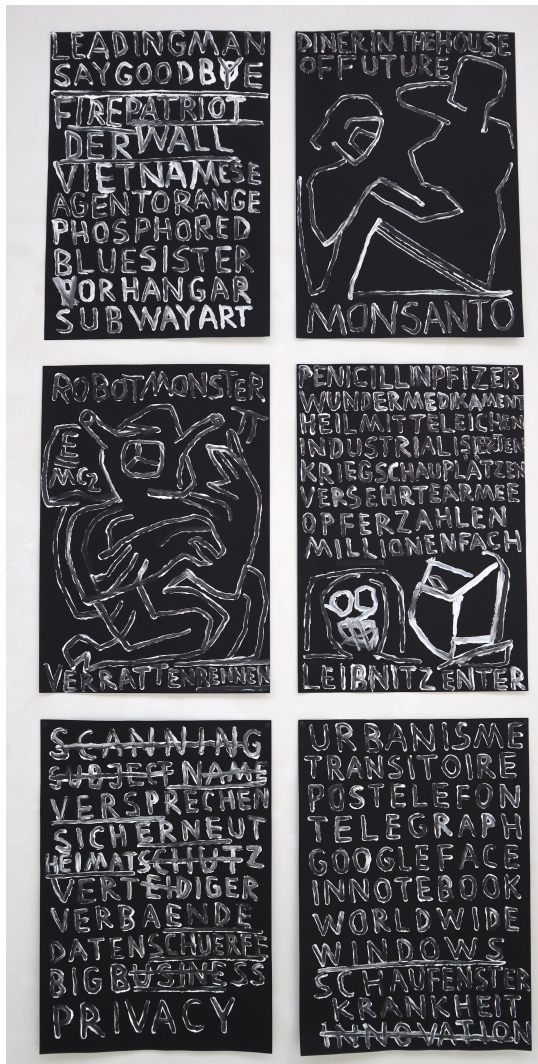 LEADINGMAN
SAYGOODBYE
FIREPATRIOT
DERWALL
VIETNAMESE
AGENTORANGE
PHOSPHORED
BLUESISTER
VORHANGAR
SUBWAYART
DINERINTHEHOUSE
OFFUTURE
MONSANTO
ROBOTMONSTER
π
E
MC2
VERRATTENRENNEN
PENICILLINPFIZER
WUNDERMEDIKAMENT
HEILMITTELEICHEN
KRIEGSCHAUPLÄTZEN
VERSEHRTEARMEE
OPFERZAHLEN
MILLIONENFACH
LEIBNITZENTER
SCANNING
SUBJECT NAME
VERSPRECHEN
SICHERNEUT
HEIMATSCHUTZ
VERTEIDIGER
VERBAENDE
DATENSCHUERFE
BIGBUSINESS
PRIVACY
URBANISME
TRANSITOIRE
POSTELEFON
TELEGRAPH
GOOGLEFACE
INNOTEBOOK
WORLDWIDE
WINDOWS
SCHAUFENSTER
KRANKHEIT
INNOVATION